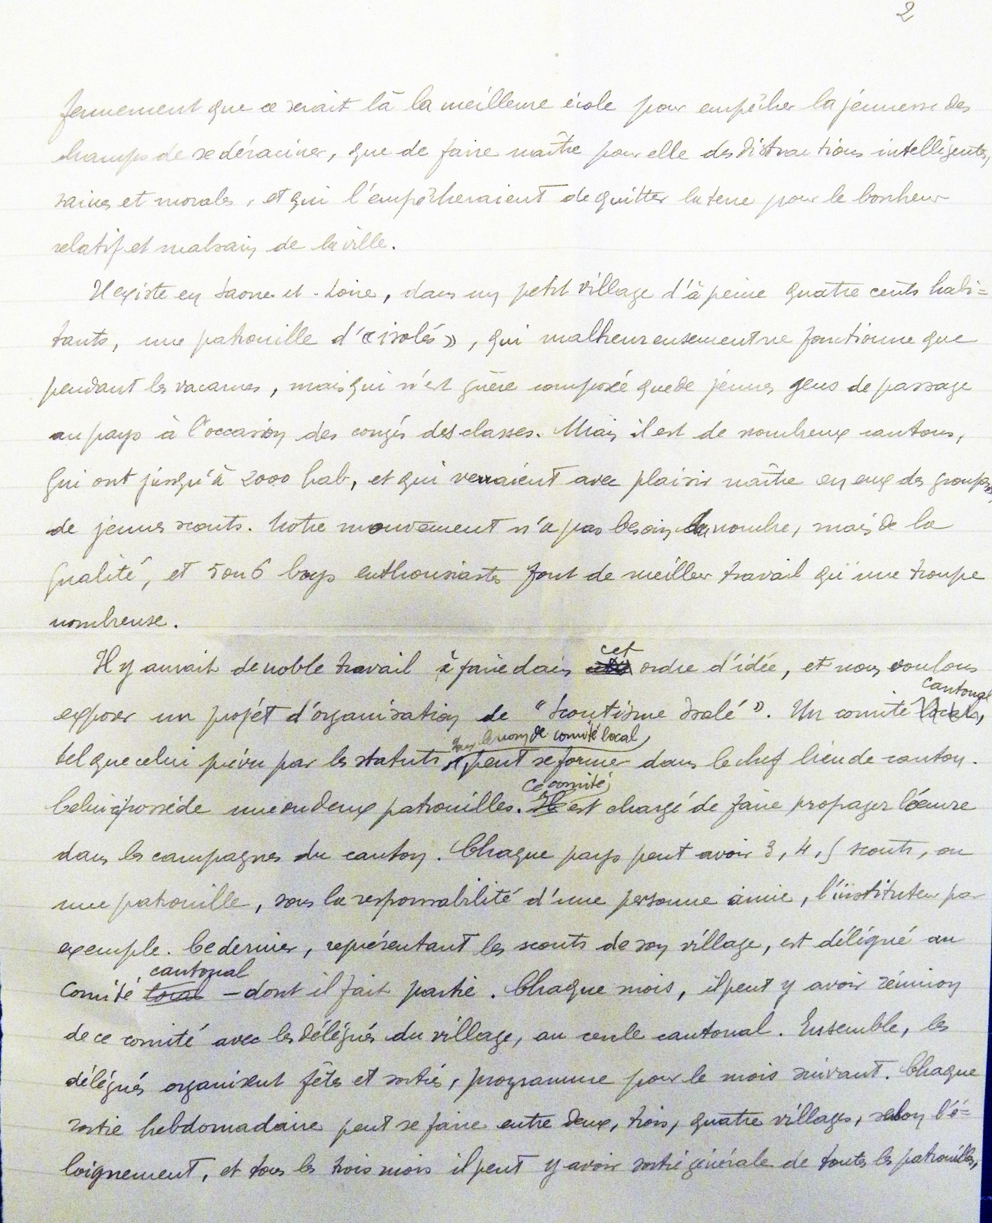 2
fermement que ce serait là la meilleure école pour empêcher la jeunesse des
champs de se déraciner, que de faire naître pour elle des distractions intelligentes,
saines et morales, et qui l'empêcheraient de quitter la terre pour le bonheur
relatif et malsain de la ville.
Il existe en Saone-et-Loire, dans un petit village d'à peine quatre cents habi=
tants, une patrouille d'«isolés», qui malheureusement ne fonctionne que
pendant les vacances, mais qui n'est guère composée que de jeunes gens de passage
au pays à l'occasion des congés des classes. Mais il est de nombreux cantons,
qui ont jusqu'à 2000 hab, et qui verraient avec plaisir naître en eux des groupes
de jeunes scouts. Notre mouvement n'a pas besoin du nombre, mais de la
qualité, et 5 ou 6 boys enthousiastes font de meilleur travail qu'une troupe
nombreuse.
Il y aurait de noble travail à faire dans cet ordre d'idée, et nous voulons
exposer un projet d'organisation de "Scoutisme Isolé". Un comité cantonal,
tel que celui prévu par les statuts sous le nom de comité local, peut se former dans le chef lieu de canton.
Celui-ci possède une ou deux patrouilles. Ce comité est chargé de faire propager l'œuvre
dans les campagnes du canton. Chaque pays peut avoir 3, 4, 5 scouts, ou
une patrouille, sous la responsabilité d'une personne amie, l'instituteur par
exemple. Ce dernier, représentant les scouts de son village, est délégué au
comité cantonal - dont il fait partie. Chaque mois, il peut y avoir réunion
de ce comité avec les délégués du village, au cercle cantonal. Ensemble, les
délégués organisent fêtes et sorties, programme pour le mois suivant. Chaque
sortie hebdomadaire peut se faire entre deux, trois, quatre villages, selon l'é=
loignement, et tous les trois mois il peut y avoir sortie générale de toutes les patrouilles,